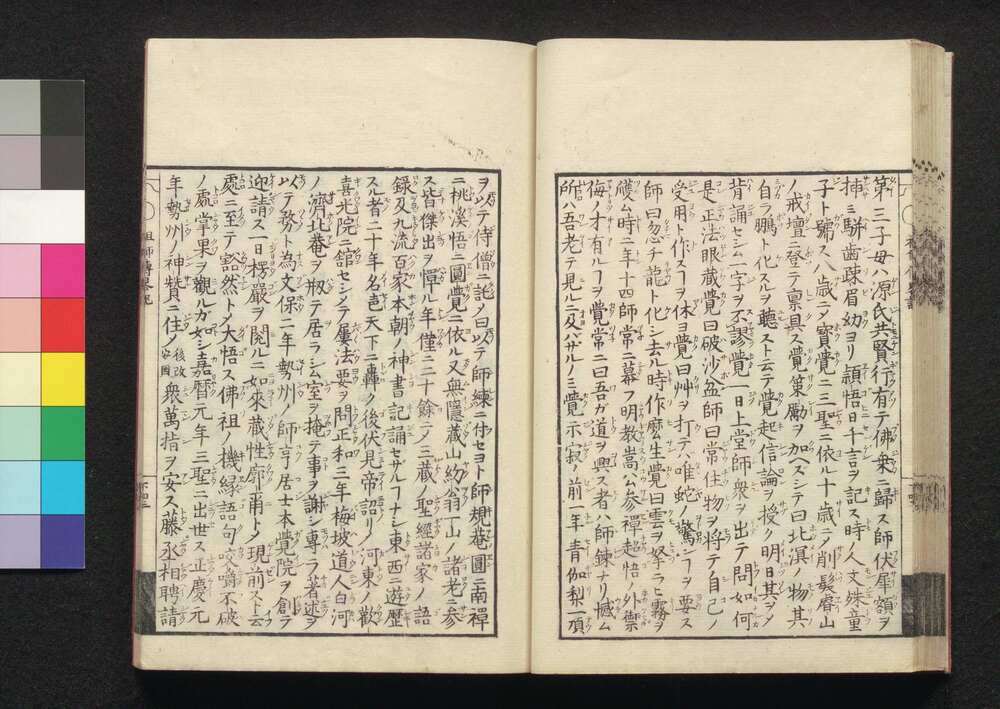 第三子母ハ源氏共賢行有テ佛衆ニ歸ス師伏犀額ヲ
挿ミ駢齒疎眉幼ヨリ頴悟日ニ千言ヲ記ス時人文殊童
子ト號ス八歳ニ〆寶覺ニ三聖ニ依ル十歳ニ〆削髮睿山
ノ戒壇ニ登テ禀具ス覺策勵ヲ加ヘズシテ曰北溟ノ物其レ
自ラ鵬ト化スルヲ聽スト云テ覺起信論ヲ授ク明日其ヲ
背誦セシム一字ヲ不謬覺一日上堂師衆ヲ出テ問如何
是正法眼藏覺曰破沙盆師曰常住物ヲ將テ自己ノ
受用ト作スヿヲ休ヨ覺曰艸ヲ打テハ唯蛇ノ驚ンヿヲ要ス
師曰忽チ龍ト化シ去ル時作麼生覺曰雲ヲ拏ミラ霧ヲ
獲ム時ニ年十四師常ニ慕フ明教嵩公參禪超悟外禦
侮ノ才有ルヿヲ覺常ニ曰吾ガ道ヲ興ス者ハ師錬ナリ憾ム
所ハ吾老テ見ルニ及バザルノミ覺示寂ノ前一年青伽梨一頂
ヲ以テ侍僧ニ詑〆曰以テ師練ニ付セヨト師規菴圓ニ南禪
ニ桃溪悟ニ圓覺ニ依ル又無隱藏山約翁一山ノ諸老ニ參
ス皆傑出ヲ憚ル年僅ニ二十餘ニ〆三藏ノ聖經諸家ノ語
録及九流百家本朝ノ神書記誦セザルヿナシ東西ニ遊歴
スル者二十年名色天下ニ轟ク後伏見帝詔〆河東ノ歡
喜光院ニ館セシメテ屢法要ヲ問正和三年梅坡道人白河
ノ濟北菴ヲ剏テ居ラシム室ヲ掩テ事ヲ謝シ專ラ著述ヲ
以テ務ト為文保二年勢州ノ師亨居士本覺院ヲ創テ
迎請ス一日楞嚴ヲ閲ルニ如來藏性廓甫ト〆現前スト云
處ニ至テ豁然ト〆大悟ス佛祖ノ機縁語句咬嚼不破
ノ處掌果ヲ觀ルガ如シ嘉暦元年三聖ニ出世ス正慶元
年勢州ノ神贊ニ住〆後改安國衆萬指ヲ安ス藤丞相聘請